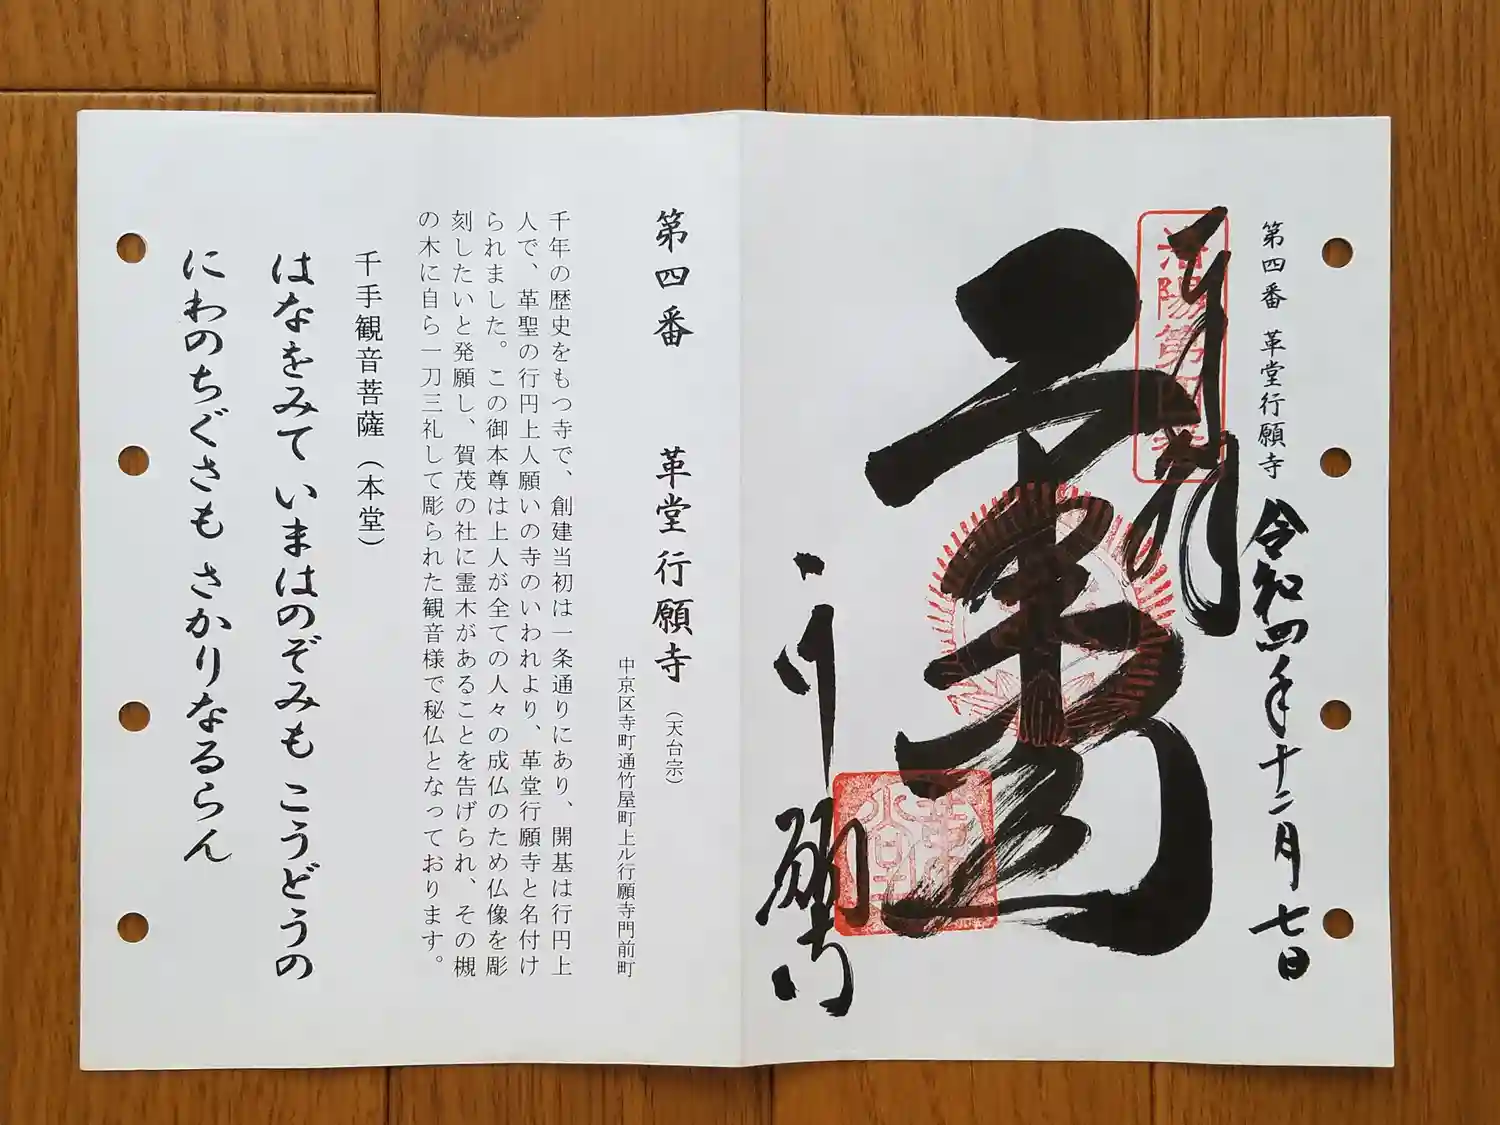 第四番 革堂行願寺
令和四年十二月七日
奉拝
洛陽第四番
革堂
行願寺
第四番 革堂行願寺（天台宗）
中京区寺町通竹屋町上ル行願寺門前町
千年の歴史をもつ寺で、創建当初は一条通りにあり、開基は行円上
人で、革聖の行円上人願いの寺のいわれより、革堂行願寺と名付け
られました。この御本尊は上人が全ての人々の成仏のため仏像を彫
刻したいと発願し、賀茂の社に霊木があることを告げられ、その槻
の木に自ら一刀三礼して彫られた観音様で秘仏となっております。
千手観音菩薩（本堂）
はなをみて いまはのぞみも こうどうの
にわのちぐさも さかりなるらん